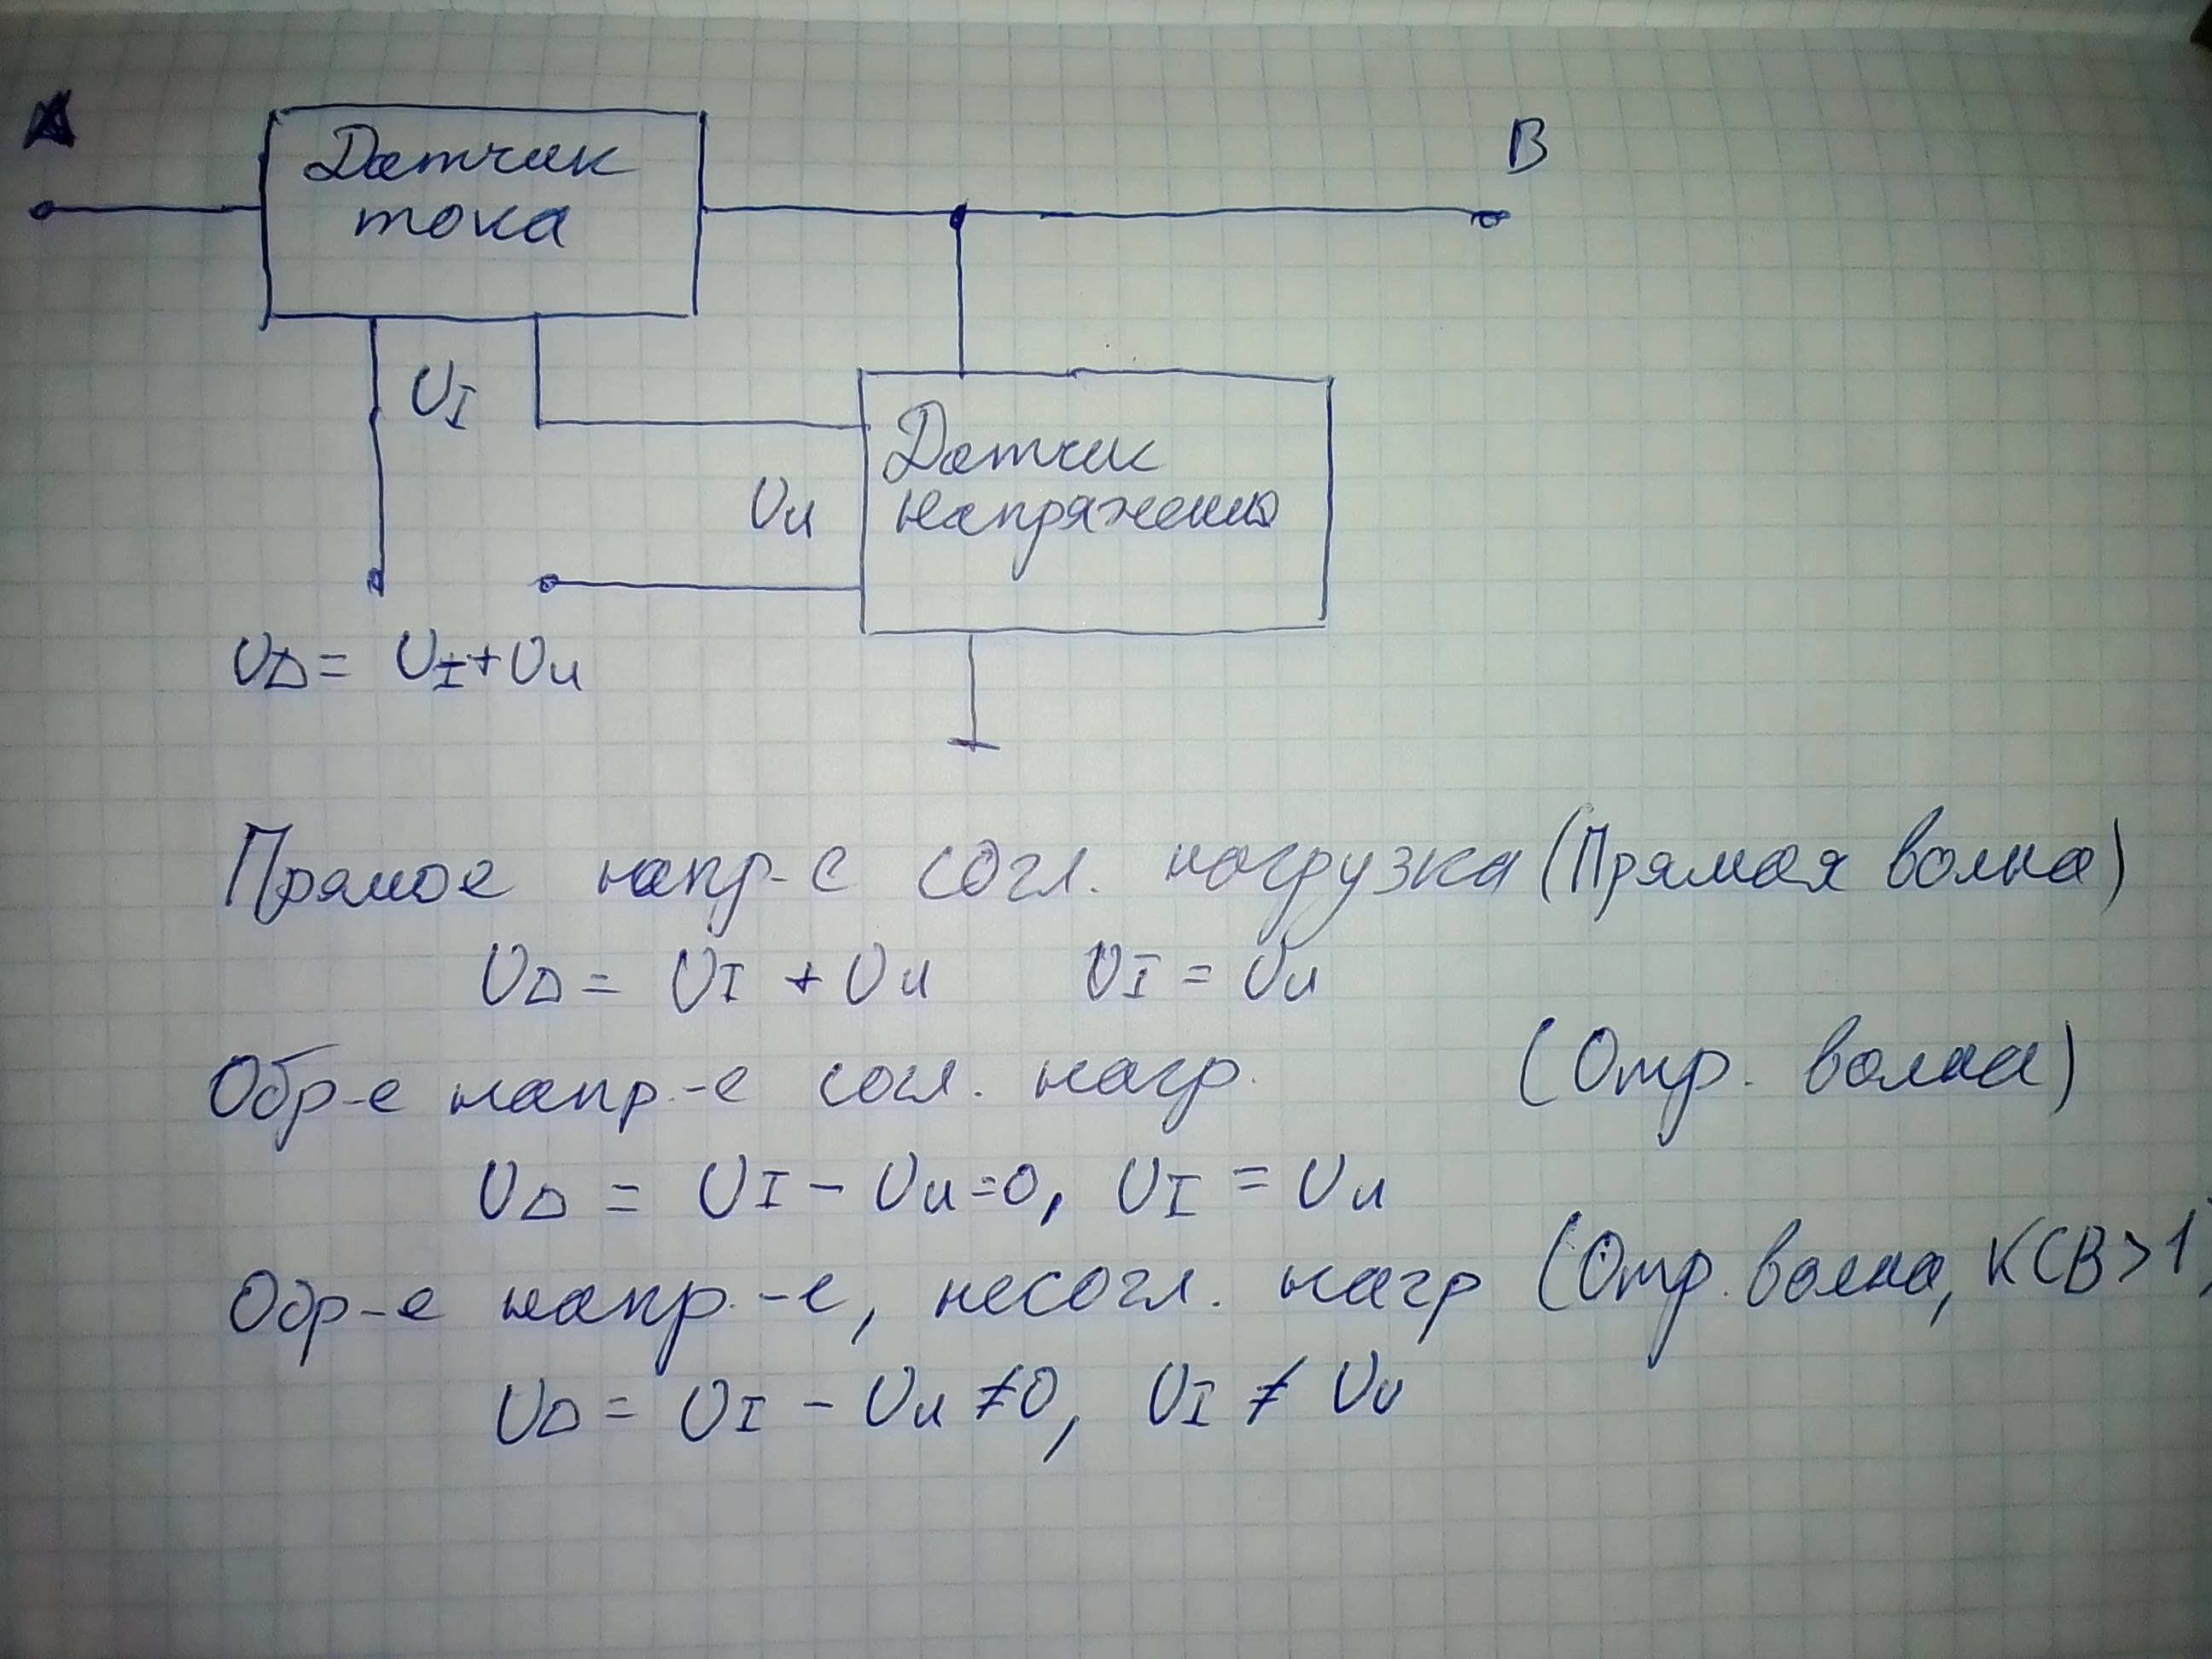 А
B
Датчик
тока
U_I
Датчик
U_u
напряжения
U_D = U_I + U_u
Прямое напр-е согл. нагрузка (Прямая волна)
U_D = U_I + U_u U_I = U_u
Обр-е напр.-е согл. нагр. (Отр. волна)
U_D = U_I - U_u = 0, U_I = U_u
Обр-е напр.-е, несогл. нагр (Отр. волна, КСВ>1)
U_D = U_I - U_u ≠ 0, U_I ≠ U_u